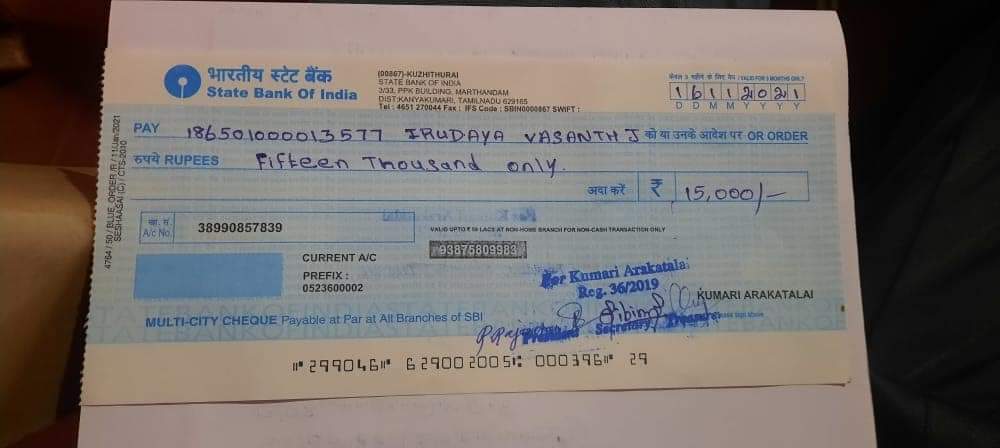 भारतीय स्टेट बैंक
State Bank Of India
(00867)-KUZHITHURAI
STATE BANK OF INDIA
3/33, PPK BUILDING, MARTHANDAM
DIST:KANYAKUMARI, TAMILNADU 629165
Tel : 4651 270044 Fax : IFS Code : SBIN0000867 SWIFT :
केवल 3 महीने के लिए वैध / VALID FOR 3 MONTHS ONLY
16112021
D D M M Y Y Y Y
PAY 186501000013577 IRUDAYA VASANTH J को या उनके आदेश पर OR ORDER
रुपये RUPEES Fifteen Thousand only.
अदा करें ₹ 15,000/-
खा. सं.
A/c No. 38990857839
VALID UPTO ₹ 50 LACS AT NON-HOME BRANCH FOR NON-CASH TRANSACTION ONLY
93875809983
CURRENT A/C
PREFIX :
0523600002
For Kumari Arakatalai
Reg. 36/2019
KUMARI ARAKATALAI
President Secretary Treasurer
MULTI-CITY CHEQUE Payable at Par at All Branches of SBI
299046 629002005 000396 29
4764 / 50 / BLUE_ORDER /R / 11/Jan/2021
SESHAASAI (C) / CTS-2010